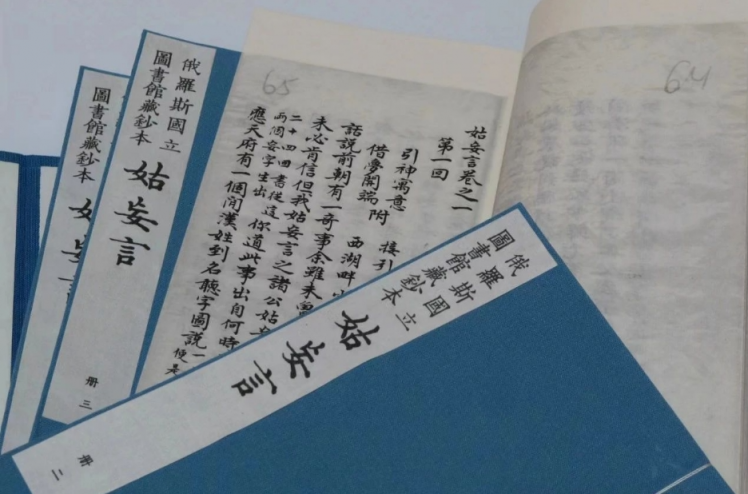 64
65
姑妄言卷之一
第一回
引神寓意 接引
借夢開端附 西湖畔
話說前朝有一奇事余雖未曾
未必肯信但我姑妄言之諸公姑妄
二十四回書從這
兩個妄字生出 你道此事出自何時
應天府有一個閒漢姓到名聽字圖說一
便是
俄羅斯國立
圖書館藏鈔本
姑妄言
冊三
圖書館藏鈔本
姑妄
俄羅斯國立
圖書館藏鈔本
姑妄言
冊二